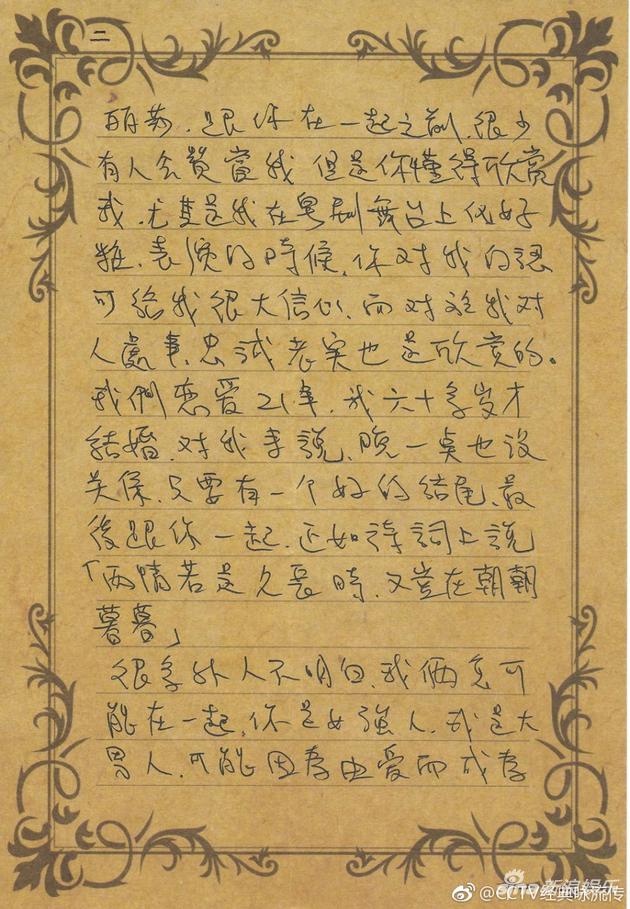 二
丽莎，跟你在一起之前，很少
有人会赞赏我，但是你懂得欣赏
我，尤其是我在粤剧舞台上化好
妝、表演的時候，你对我的認
可给我很大信心，而对於我对
人處事，忠诚老实也是欣赏的。
我們恋爱21年，我六十多岁才
結婚，对我来說，晚一点也没
关係，只要有一个好的結尾，最
後跟你一起，正如詩詞上說
「两情若是久長時，又豈在朝朝
暮暮」
很多外人不明白，我俩怎可
能在一起，你是女強人，我是大
男人，可能因为由爱而成为
sina新浪娱乐
@CCTV经典咏流传